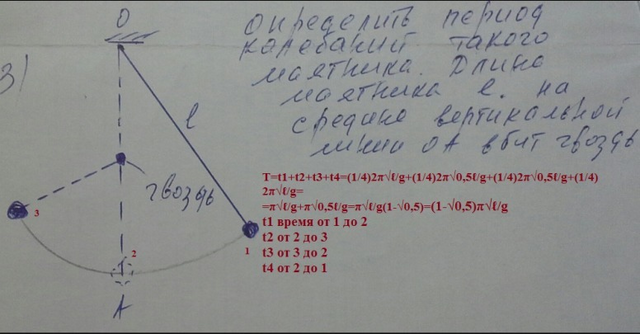 O
3)
Определить период
колебаний такого
маятника. Длина
маятника l. на
средине вертикальной
линии OA вбит гвоздь
l
гвоздь
T=t1+t2+t3+t4=(1/4)2π√ℓ/g+(1/4)2π√0,5ℓ/g+(1/4)2π√0,5ℓ/g+(1/4)
2π√ℓ/g=
=π√ℓ/g+π√0,5ℓ/g=π√ℓ/g(1-√0,5)=(1-√0,5)π√ℓ/g
t1 время от 1 до 2
t2 от 2 до 3
t3 от 3 до 2
t4 от 2 до 1
3
2
1
A